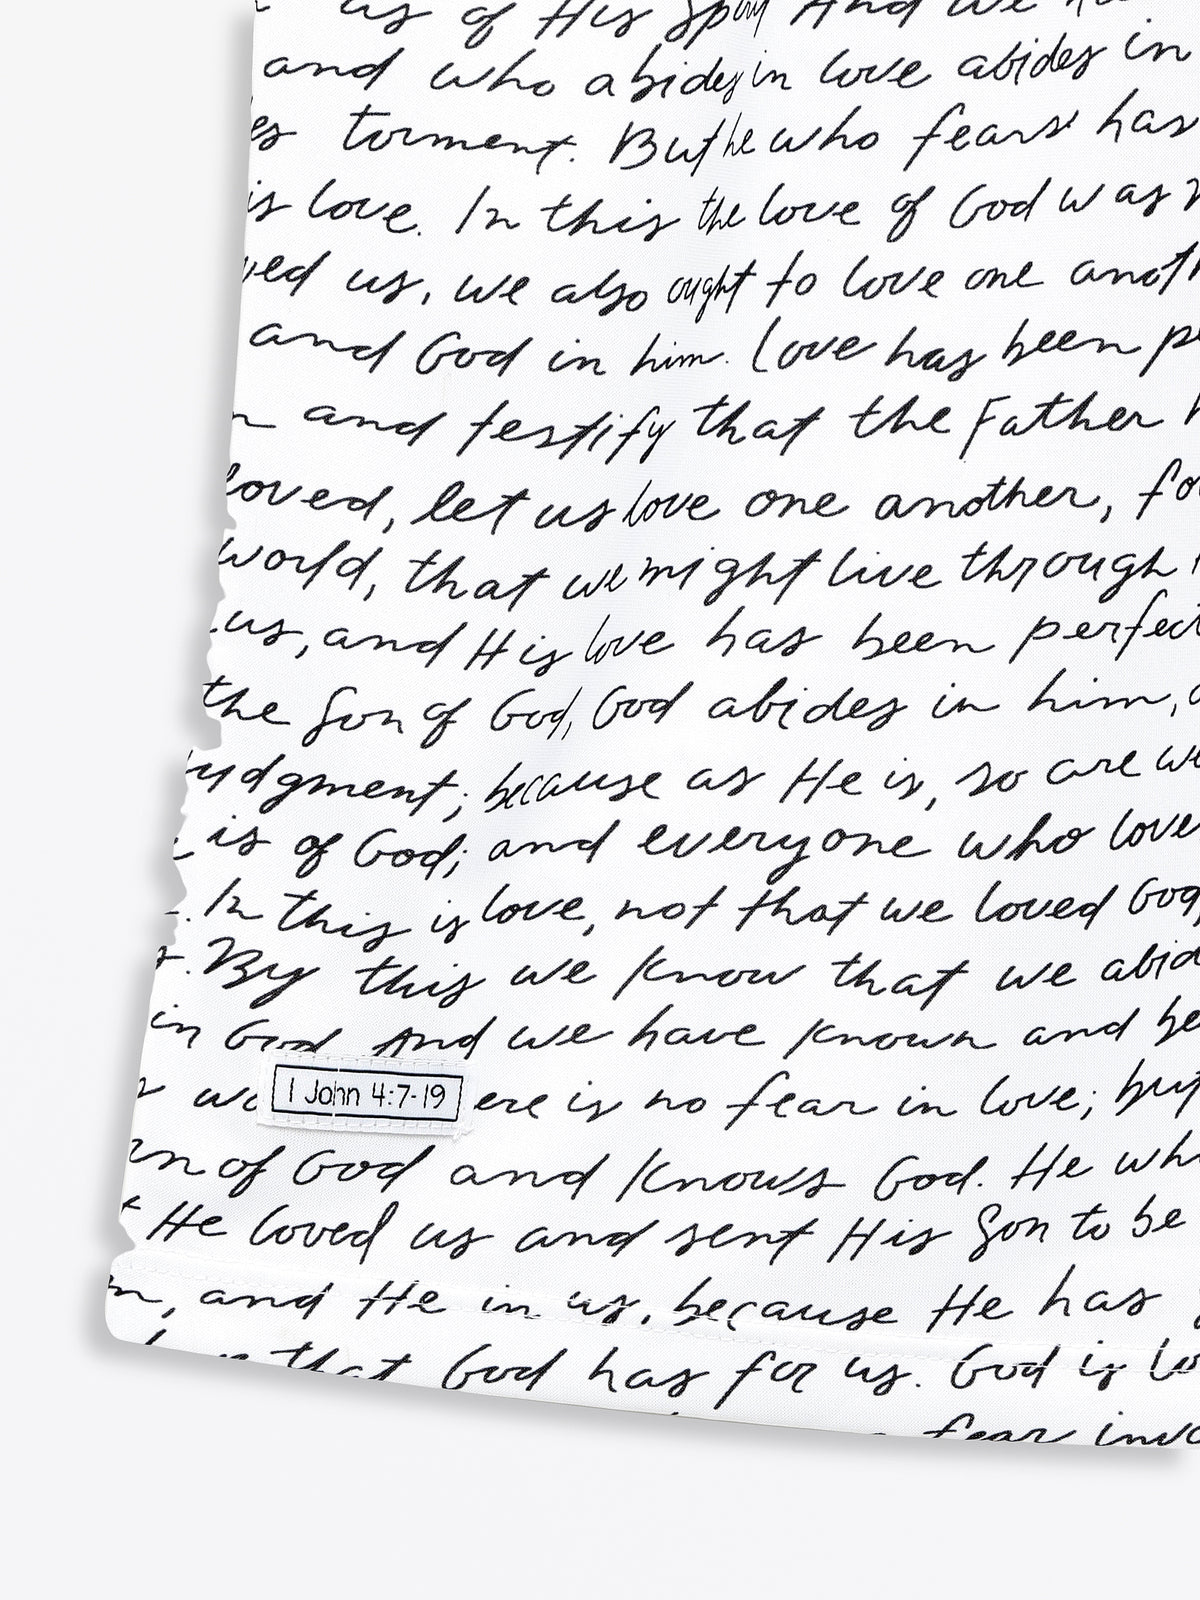 us of His Spirit And we
and who abides in love abides in
torment. But he who fears has
is love. In this the love of God was
us, we also ought to love one
and God in him. Love has been
and testify that the Father
loved, let us love one another,
world, that we might live through
us, and His love has been
the Son of God, God abides in him,
judgment; because as He is, so are we
is of God; and everyone who
In this is love, not that we loved God,
By this we know that we
in God And we have known and
ere is no fear in love; but
1 John 4:7-19
of God and knows God. He
He loved us and sent His Son to be
and He in us, because He has
that God has for us. God is
fear